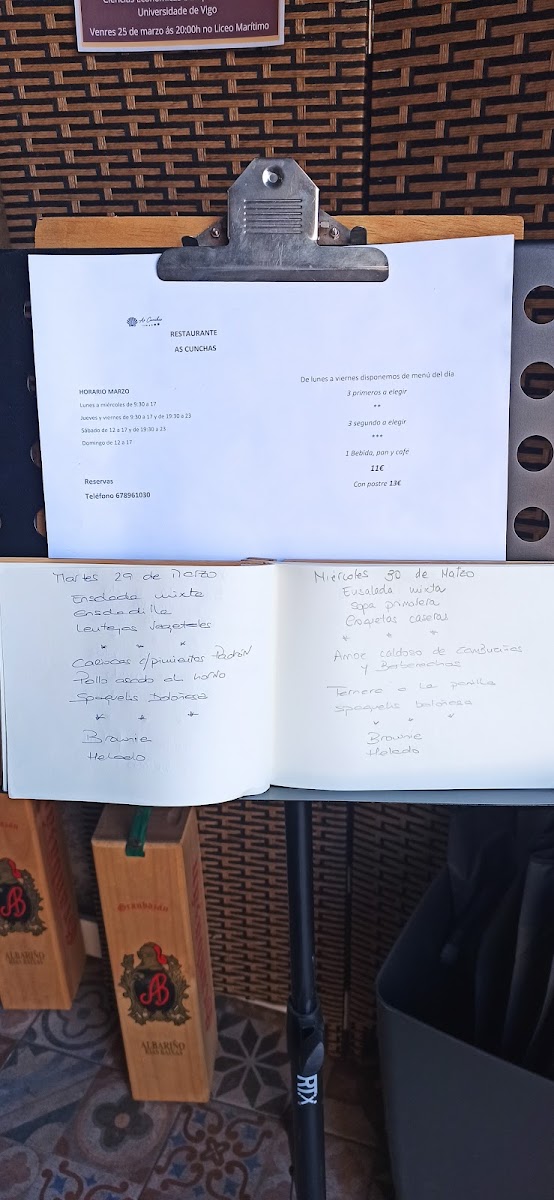 Ciencias Económicas
Universidade de Vigo
Venres 25 de marzo ás 20:00h no Liceo Marítimo
As Cunchas
RESTAURANTE
AS CUNCHAS
HORARIO MARZO
Lunes a miércoles de 9:30 a 17
Jueves y viernes de 9:30 a 17 y de 19:30 a 23
Sábado de 12 a 17 y de 19:30 a 23
Domingo de 12 a 17
Reservas
Teléfono 678961030
De lunes a viernes disponemos de menú del día
3 primeros a elegir
**
3 segundo a elegir
***
1 Bebida, pan y café
11€
Con postre 13€
Martes 29 de Marzo
Ensalada mixta
ensaladilla
Lentejas Vegetales
* * *
Cariocas c/pimientos Padrón
Pollo asado al horno
Spaguetis Boloñesa
* * *
Brownie
Helado
Miércoles 30 de Marzo
Ensalada mixta
Sopa primavera
Croquetas caseras
* * *
Arroz caldoso de
y Berberechos
Ternera a la parrilla
Spaguetis boloñesa
* * *
Brownie
Helado
Granbazán
AB
ALBARIÑO
RIAS BAIXAS
AB
ALBARIÑO
RIAS BAIXAS
RTX